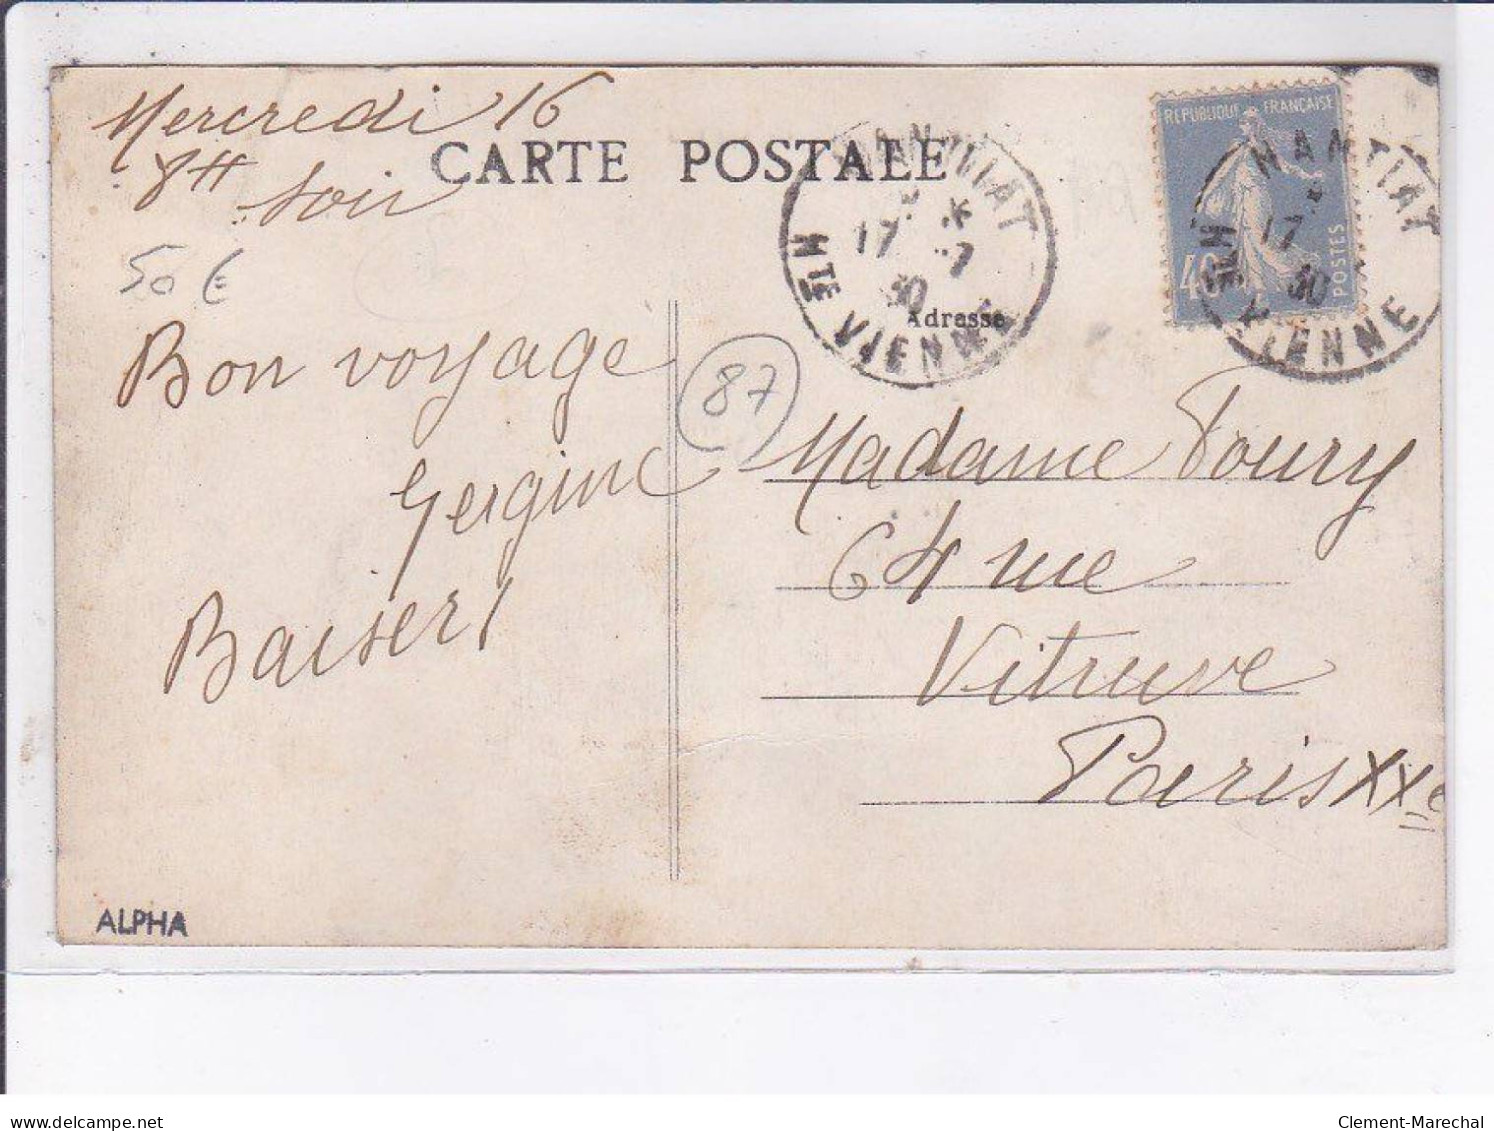 Mercredi 16
8H soir
CARTE POSTALE
50 €
Bon voyage
Baisers
87
NANTIAT
17 -7
30
HTE VIENNE
REPUBLIQUE FRANÇAISE
40
POSTES
NANTIAT
17
30
HTE VIENNE
Adresse
Madame Toury
64 rue
Vitruve
Paris XXe
ALPHA
delcampe.net
Clement-Marechal